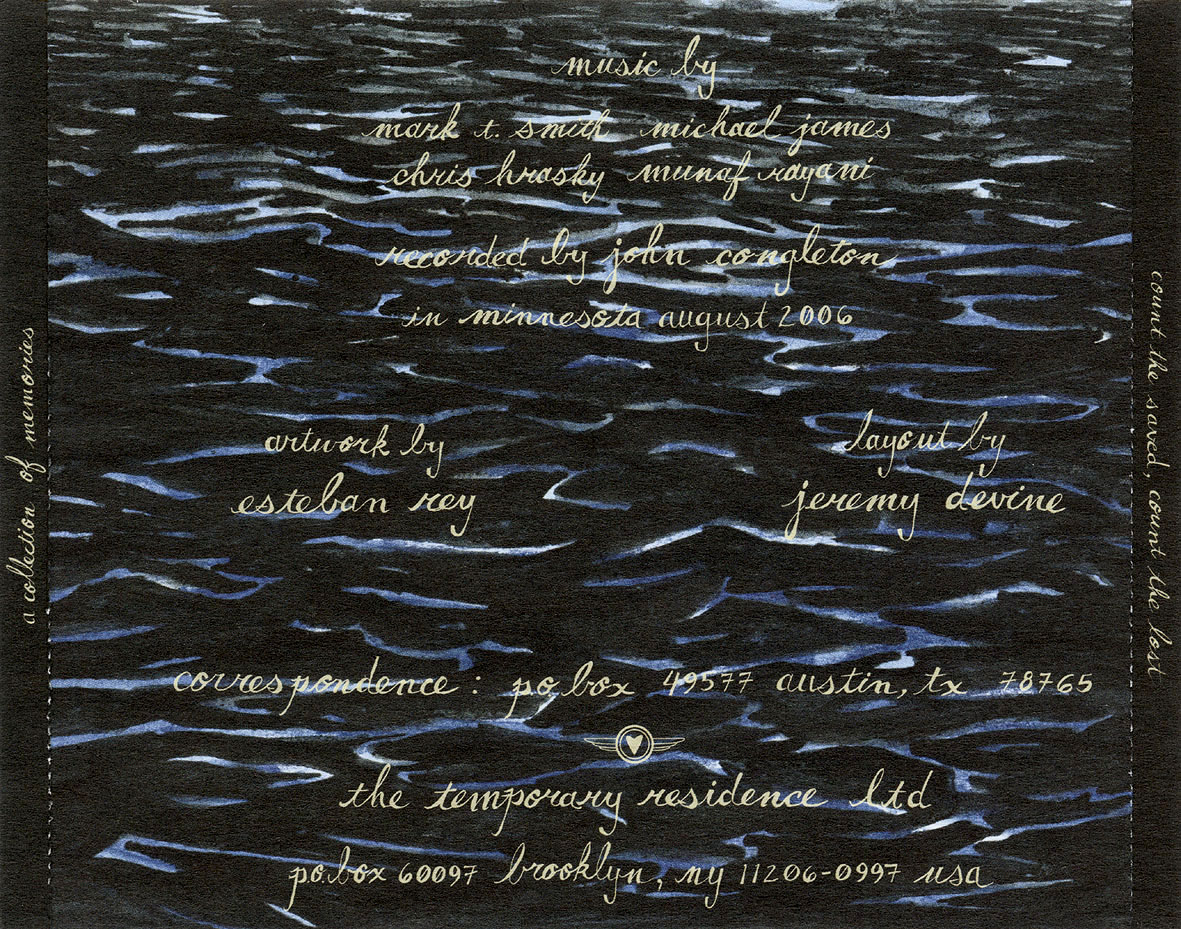 music by
mark t. smith michael james
chris hrasky munaf rayani
recorded by john congleton
in minnesota august 2006
artwork by
esteban rey
layout by
jeremy devine
correspondence: po box 49577 austin, tx 78765
the temporary residence ltd
po.box 60097 brooklyn, ny 11206-0997 usa
a collection of memories
count the saved, count the lost